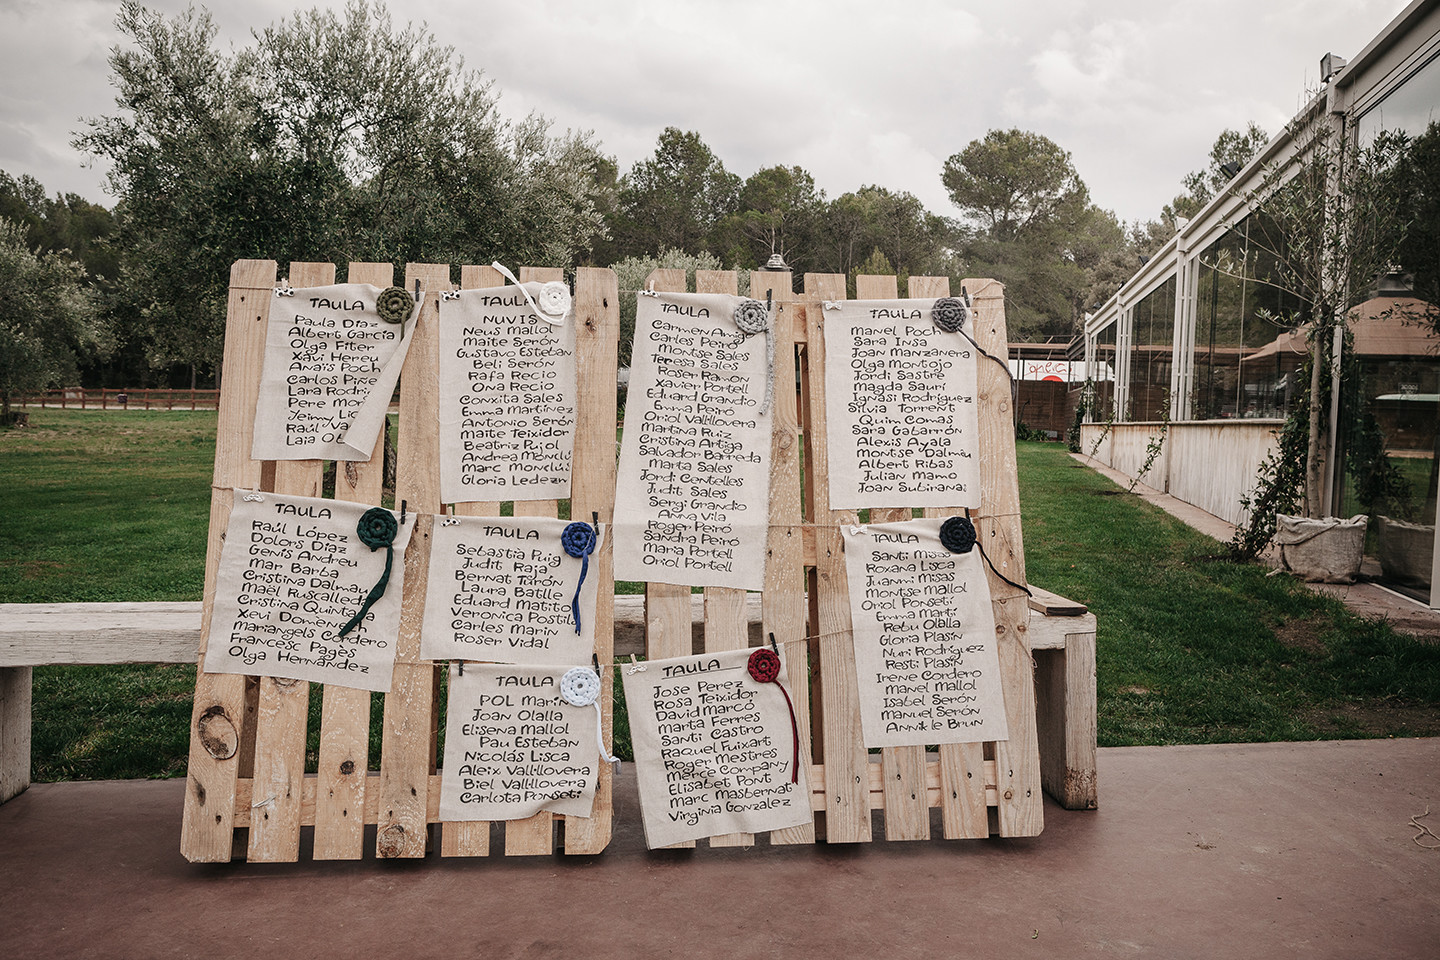 TAULA
Paula Díaz
Albert García
Olga Fiter
Xavi Hereu
Anaïs Poch
Carlos
Lara
Pere
Jeimy
Raúl
Laia
TAULA
NUVIS
Neus Mallol
Maite Serón
Gustavo Esteban
Beli Serón
Rafa Recio
Ona Recio
Conxita Sales
Emma Martínez
Antonio Serón
Maite Teixidor
Beatriz Pujol
Andrea Monclús
Marc Monclús
Gloria
TAULA
Carmen
Carles Peiró
Montse Sales
Teresa Sales
Roser Ramon
Xavier Portell
Eduard Grandio
Emma Peiró
Oriol Vall·llovera
Martina Ruiz
Cristina Artiga
Salvador Barreda
Marta Sales
Jordi Centelles
Judit Sales
Sergi Grandio
Anna Vila
Roger Peiró
Sandra Peiró
Maria Portell
Oriol Portell
TAULA
Manel Poch
Sara Insa
Joan Manzanera
Olga Montojo
Jordi Sastre
Magda Saurí
Ignasi Rodríguez
Silvia Torrent
Quim Comas
Sara Gabarrón
Alexis Ayala
Montse Dalmau
Albert Ribas
Julian Mamo
Joan Subirana
TAULA
Raúl López
Dolors Díaz
Genís Andreu
Mar Barba
Cristina Dalmau
Maël Ruscalleda
Cristina Quintana
Xevi Domènech
Mariangels Cordero
Francesc Pagès
Olga Hernández
TAULA
Sebastià Puig
Judit Raja
Bernat Tarón
Laura Batlle
Eduard Matito
Veronica Postila
Carles Marin
Roser Vidal
TAULA
Santi Misas
Roxana Lisca
Juanmi Misas
Montse Mallol
Oriol Ponseti
Emma Martí
Rebu Olalla
Gloria Plasín
Nuri Rodríguez
Resti Plasín
Irene Cordero
Manel Mallol
Isabel Serón
Manuel Serón
Annik le Brun
TAULA
POL Marin
Joan Olalla
Elisena Mallol
Pau Esteban
Nicolás Lisca
Aleix Vall·llovera
Biel Vall·llovera
Carlota Ponseti
TAULA
Jose Perez
Rosa Teixidor
David Marcó
Marta Ferres
Santi Castro
Raquel Fuixart
Roger Mestres
Mercè Company
Elisabet Pont
Marc Masbernat
Virginia Gonzalez